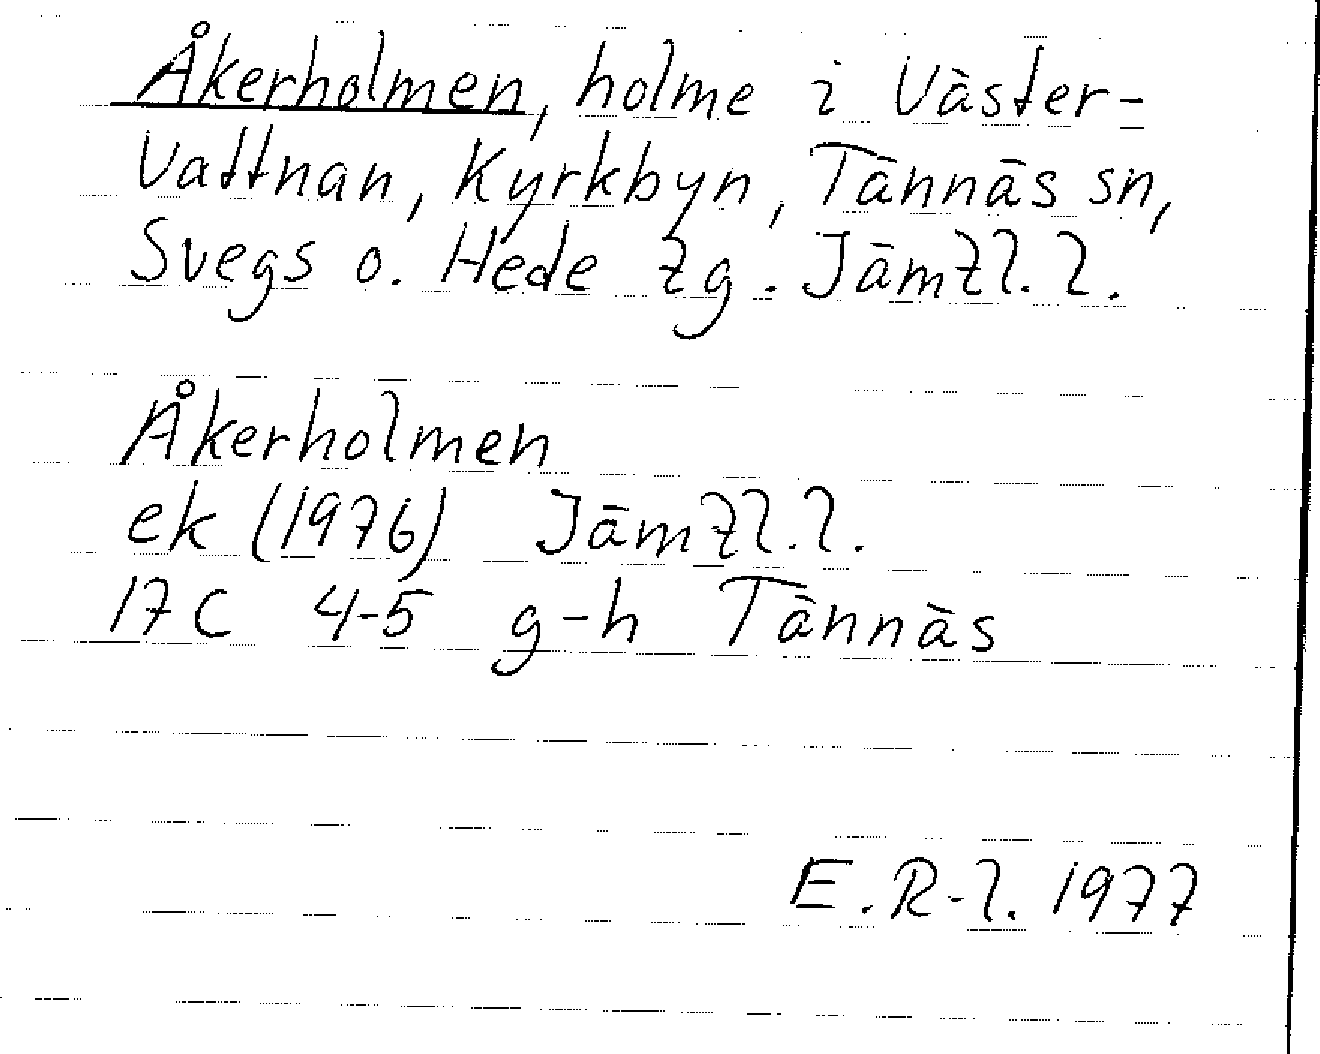 Åkerholmen, holme i Väster-
Vattnan, Kyrkbyn, Tännäs sn,
Svegs o. Hede tg. Jämtl. l.
Åkerholmen
ek (1976) Jämtl. l.
17C 4-5 g-h Tännäs
E. R-l. 1977